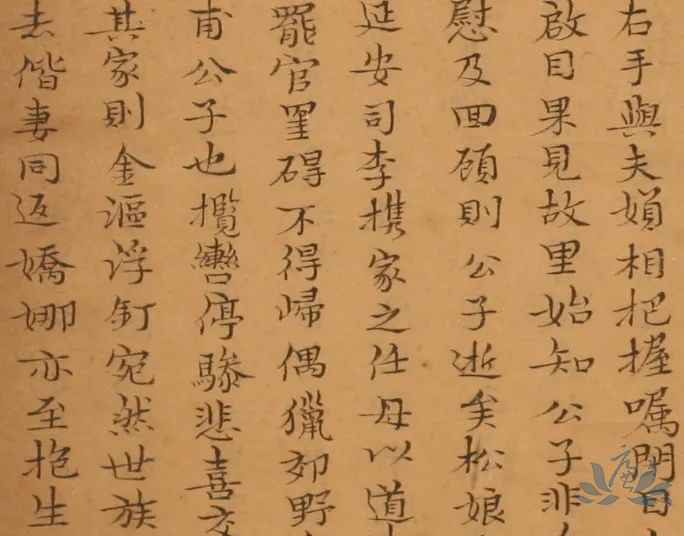 右手與夫婦相把握嘱閉目
啟目果見故里始知公子非
慰及回顧則公子逝矣松娘
延安司李携家之任母以道
罷官罣碍不得歸偶獵郊野
甫公子也攬轡停驂悲喜交
其家則金漚浮釘宛然世族
去偕妻同返嬌娜亦至抱生